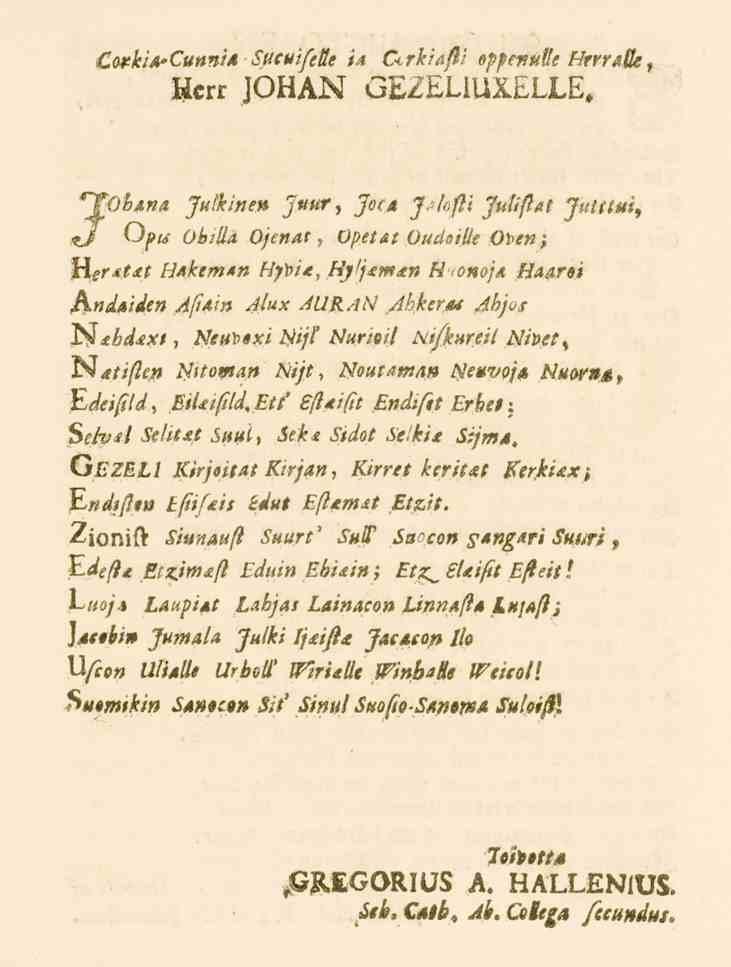 Corkia-Cunnia-Sucuiſelle ia Corkiaſti oppenulle Herralle,
Herr JOHAN GEZELIUXELLE.
JOhana Julkinen Juur, Joca Jaloſti Juliſtat Juttui,
Opis Obilla Ojenat, Opetat Oudoille Oven;
Heratæt Hakeman Hyviæ, Hyljæmæn Huonoja Haaroi
Andaiden Aſiain Alux AURAN Ahkeras Ahjos
Næhdæxi, Neuvoxi Nijl' Nurioil Niſkureil Nivet,
Nætiſten Nitoman Nijt, Noutaman Neuvoja Nuorna,
Edeiſild, Eilæiſild, Ett' Eſtæiſit Endiſet Erhet;
Selvæl Selitæt Suul, Sekæ Sidot Selkiæ Sijma.
GEZELI Kirjoitat Kirjan, Kirret keritæt Kerkiæx;
Endiſten Eſiiſæis Edut Eſtæmæt Etzit.
Zioniſt Siunauſt Suurt' Sull' Suocon Sangari Suuri,
Edeſtæ Etzimæſt Eduin Ehiæin; Etz Elæiſit Eſteit!
Luoja Laupiat Lahjas Lainacon Linnaſta Lujaſt;
Jacobin Jumala Julki Ijæiſtæ Jacacon Ilo
Uſcon Ulialle Urholl' Wirialle Winhalle Weicol!
Suomikin Sanocon Sit' Sinul Suoſio-Sanoma Suloiſt!
Toivotta
GREGORIUS A. HALLENIUS.
Sch. Cath. Ab. Collega ſecundus.